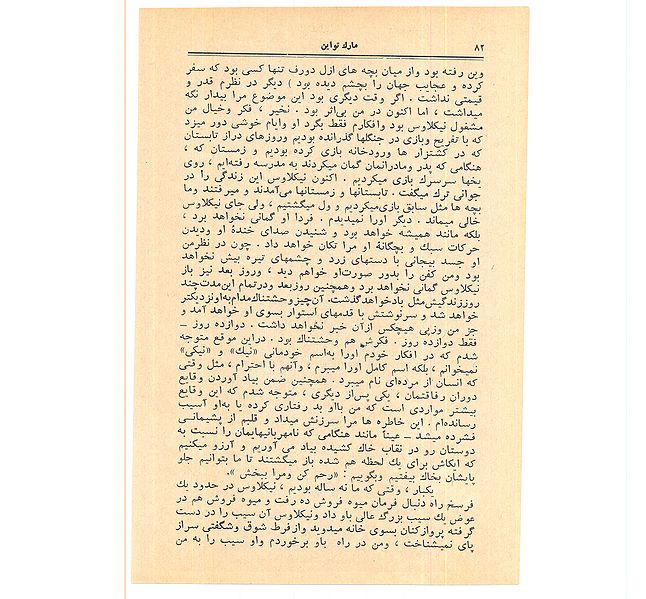 ۸۲
مارك تواین
وین رفته بود واز میان بچه های ازل دورف تنها کسی بود که سفر
کرده و عجایب جهان را بچشم دیده بود ) دیگر در نظرم قدر و
قیمتی نداشت . اگر وقت دیگری بود این موضوع مرا بیدار نگه
میداشت ، اما اکنون در من بی‌اثر بود . نخیر ، فکر وخیال من
مشغول نیکلاوس بود وافکارم فقط بگرد او وایام خوشی دور میزد
که با تفریح وبازی در جنگلها گذرانده بودیم وروزهای دراز تابستان
که در کشتزار ها ورودخانه بازی کرده بودیم و زمستان که ،
هنگامی که پدر ومادرانمان گمان میکردند به مدرسه رفته‌ایم ، روی
یخها سرسرك بازی میکردیم . اکنون نیکلاوس این زندگی را در
جوانی ترك میگفت . تابستانها و زمستانها می‌آمدند و میرفتند وما
بچه ها مثل سابق بازی‌میکردیم و ول میگشتیم ، ولی جای نیکلاوس
خالی میماند . دیگر اورا نمیدیدم . فردا او گمانی نخواهد برد ،
بلکه مانند همیشه خواهد بود و شنیدن صدای خندهٔ او ودیدن
حرکات سبك و بچگانهٔ او مرا تکان خواهد داد . چون در نظرمن
او جسد بیجانی با دستهای زرد و چشمهای تیره بیش نخواهد
بود ومن کفن را بدور صورت‌او خواهم دید ، وروز بعد نیز باز
نیکلاوس گمانی نخواهد برد وهمچنین روزبعد ودرتمام این‌مدت‌چند
روززندگیش‌مثل بادخواهدگذشت. آن‌چیزوحشتناك‌مدام‌به‌اونزدیکتر
خواهد شد و سرنوشتش با قدمهای استوار بسوی او خواهد آمد و
جز من وزپی هیچکس ازآن خبر نخواهد داشت . دوازده روز ــ
فقط دوازده روز . فکرش هم وحشتناك بود . دراین موقع متوجه
شدم که در افکار خودم اورا به‌اسم خودمانی «نیك» و «نیکی»
نمیخوانم ، بلکه اسم کامل اورا میبرم ، وآنهم با احترام ، مثل وقتی
که انسان از مرده‌ای نام میبرد . همچنین ضمن بیاد آوردن وقایع
دوران رفاقتمان ، یکی پس‌از دیگری ، متوجه شدم که این وقایع
بیشتر مواردی است که من بااو بد رفتاری کرده یا به‌او آسیب
رسانده‌ام . این خاطره ها مرا سرزنش میداد و قلبم از پشیمانی
فشرده میشد ــ عیناً مانند هنگامی که نامهربانیهایمان را نسبت به
دوستان رو در نقاب خاك کشیده بیاد می آوریم و آرزو میکنیم
که ایکاش برای یك لحظه هم شده باز میگشتند تا ما بتوانیم جلو
پایشان بخاك بیفتیم وبگوییم : «رحم کن ومرا ببخش ».
یکبار ، وقتی که ما نه ساله بودیم ، نیکلاوس در حدود یك
فرسخ راه دنبال فرمان میوه فروش ده رفت و میوه فروش هم در
عوض یك سیب بزرگ عالی باو داد ونیکلاوس آن سیب را در دست
گرفته پروازکنان بسوی خانه میدوید وازفرط شوق وشگفتی سراز
پای نمیشناخت ، ومن در راه باو برخوردم واو سیب را به من